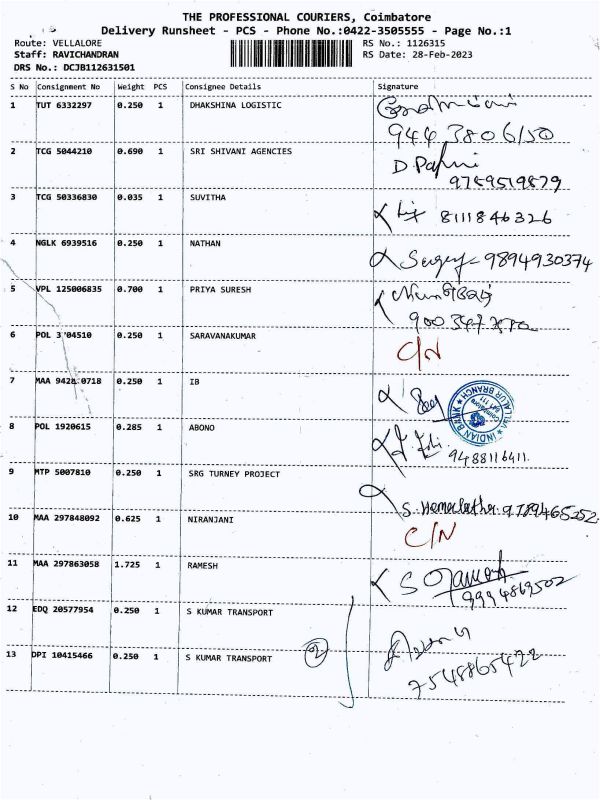 THE PROFESSIONAL COURIERS, Coimbatore
Delivery Runsheet - PCS - Phone No.:0422-3505555 - Page No.:1
Route: VELLALORE RS No.: 1126315
Staff: RAVICHANDRAN RS Date: 28-Feb-2023
DRS No.: DCJB112631501
S No Consignment No Weight PCS Consignee Details Signature
1 TUT 6332297 0.250 1 DHAKSHINA LOGISTIC
944 3806150
2 TCG 5044210 0.690 1 SRI SHIVANI AGENCIES
9789519879
3 TCG 50336830 0.035 1 SUVITHA
8111846326
4 NGLK 6939516 0.250 1 NATHAN
9894930374
5 VPL 125006835 0.700 1 PRIYA SURESH
6 POL 3 04510 0.250 1 SARAVANAKUMAR
C/N
7 MAA 0718 0.250 1 IB
INDIAN BANK
VELLALUR BRANCH
8 POL 1920615 0.285 1 ABONO
9488116411
9 MTP 5007810 0.250 1 SRG TURNEY PROJECT
S. Hemalatha
10 MAA 297848092 0.625 1 NIRANJANI
C/N
11 MAA 297863058 1.725 1 RAMESH
9994869502
12 EDQ 20577954 0.250 1 S KUMAR TRANSPORT
13 DPI 10415466 0.250 1 S KUMAR TRANSPORT 2
7548865422